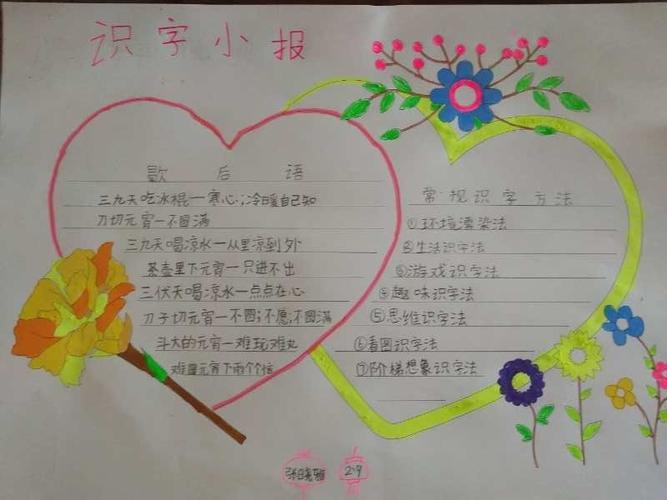 识字小报
歇后语
三九天吃冰棍一寒心;冷暖自己知
刀切元宵一不圆满
三九天喝凉水一从里凉到外
茶壶里下元宵一只进不出
三伏天喝凉水一点点在心
刀子切元宵一不圆;不愿;不圆满
斗大的元宵一难难丸
元宵下两个
常规识字方法
①环境法
②生活识字法
③游戏识字法
④趣味识字法
⑤思维识字法
⑥看图识字法
⑦阶梯想象识字法
29